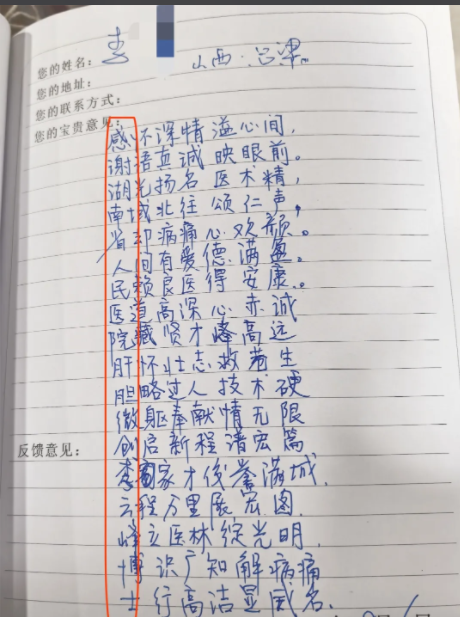 您的姓名：李
山西·吕梁
您的地址：
您的联系方式：
您的宝贵意见：
感怀深情溢心间，
谢语真诚映眼前。
湖光扬名医术精，
南域北往颂仁声，
省却病痛心欢颜。
人间有爱德满盈。
民赖良医得安康。
医道高深心亦诚
院藏贤才峰高远
肝怀壮志救苍生
胆略过人技术硬
微躯奉献情无限
创启新程谱宏篇
反馈意见：
李家才俊誉满城.
云程万里展宏图.
峰立医林绽光明.
博识广知解病痛
士行高洁显威名.